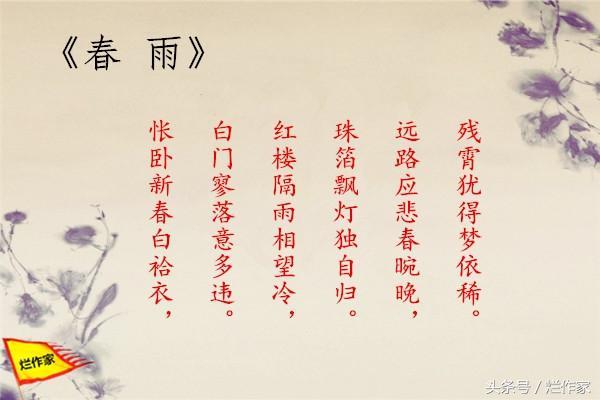 《春 雨》
怅卧新春白袷衣，
白门寥落意多违。
红楼隔雨相望冷，
珠箔飘灯独自归。
远路应悲春晼晚，
残霄犹得梦依稀。
烂作家
头条号 / 烂作家